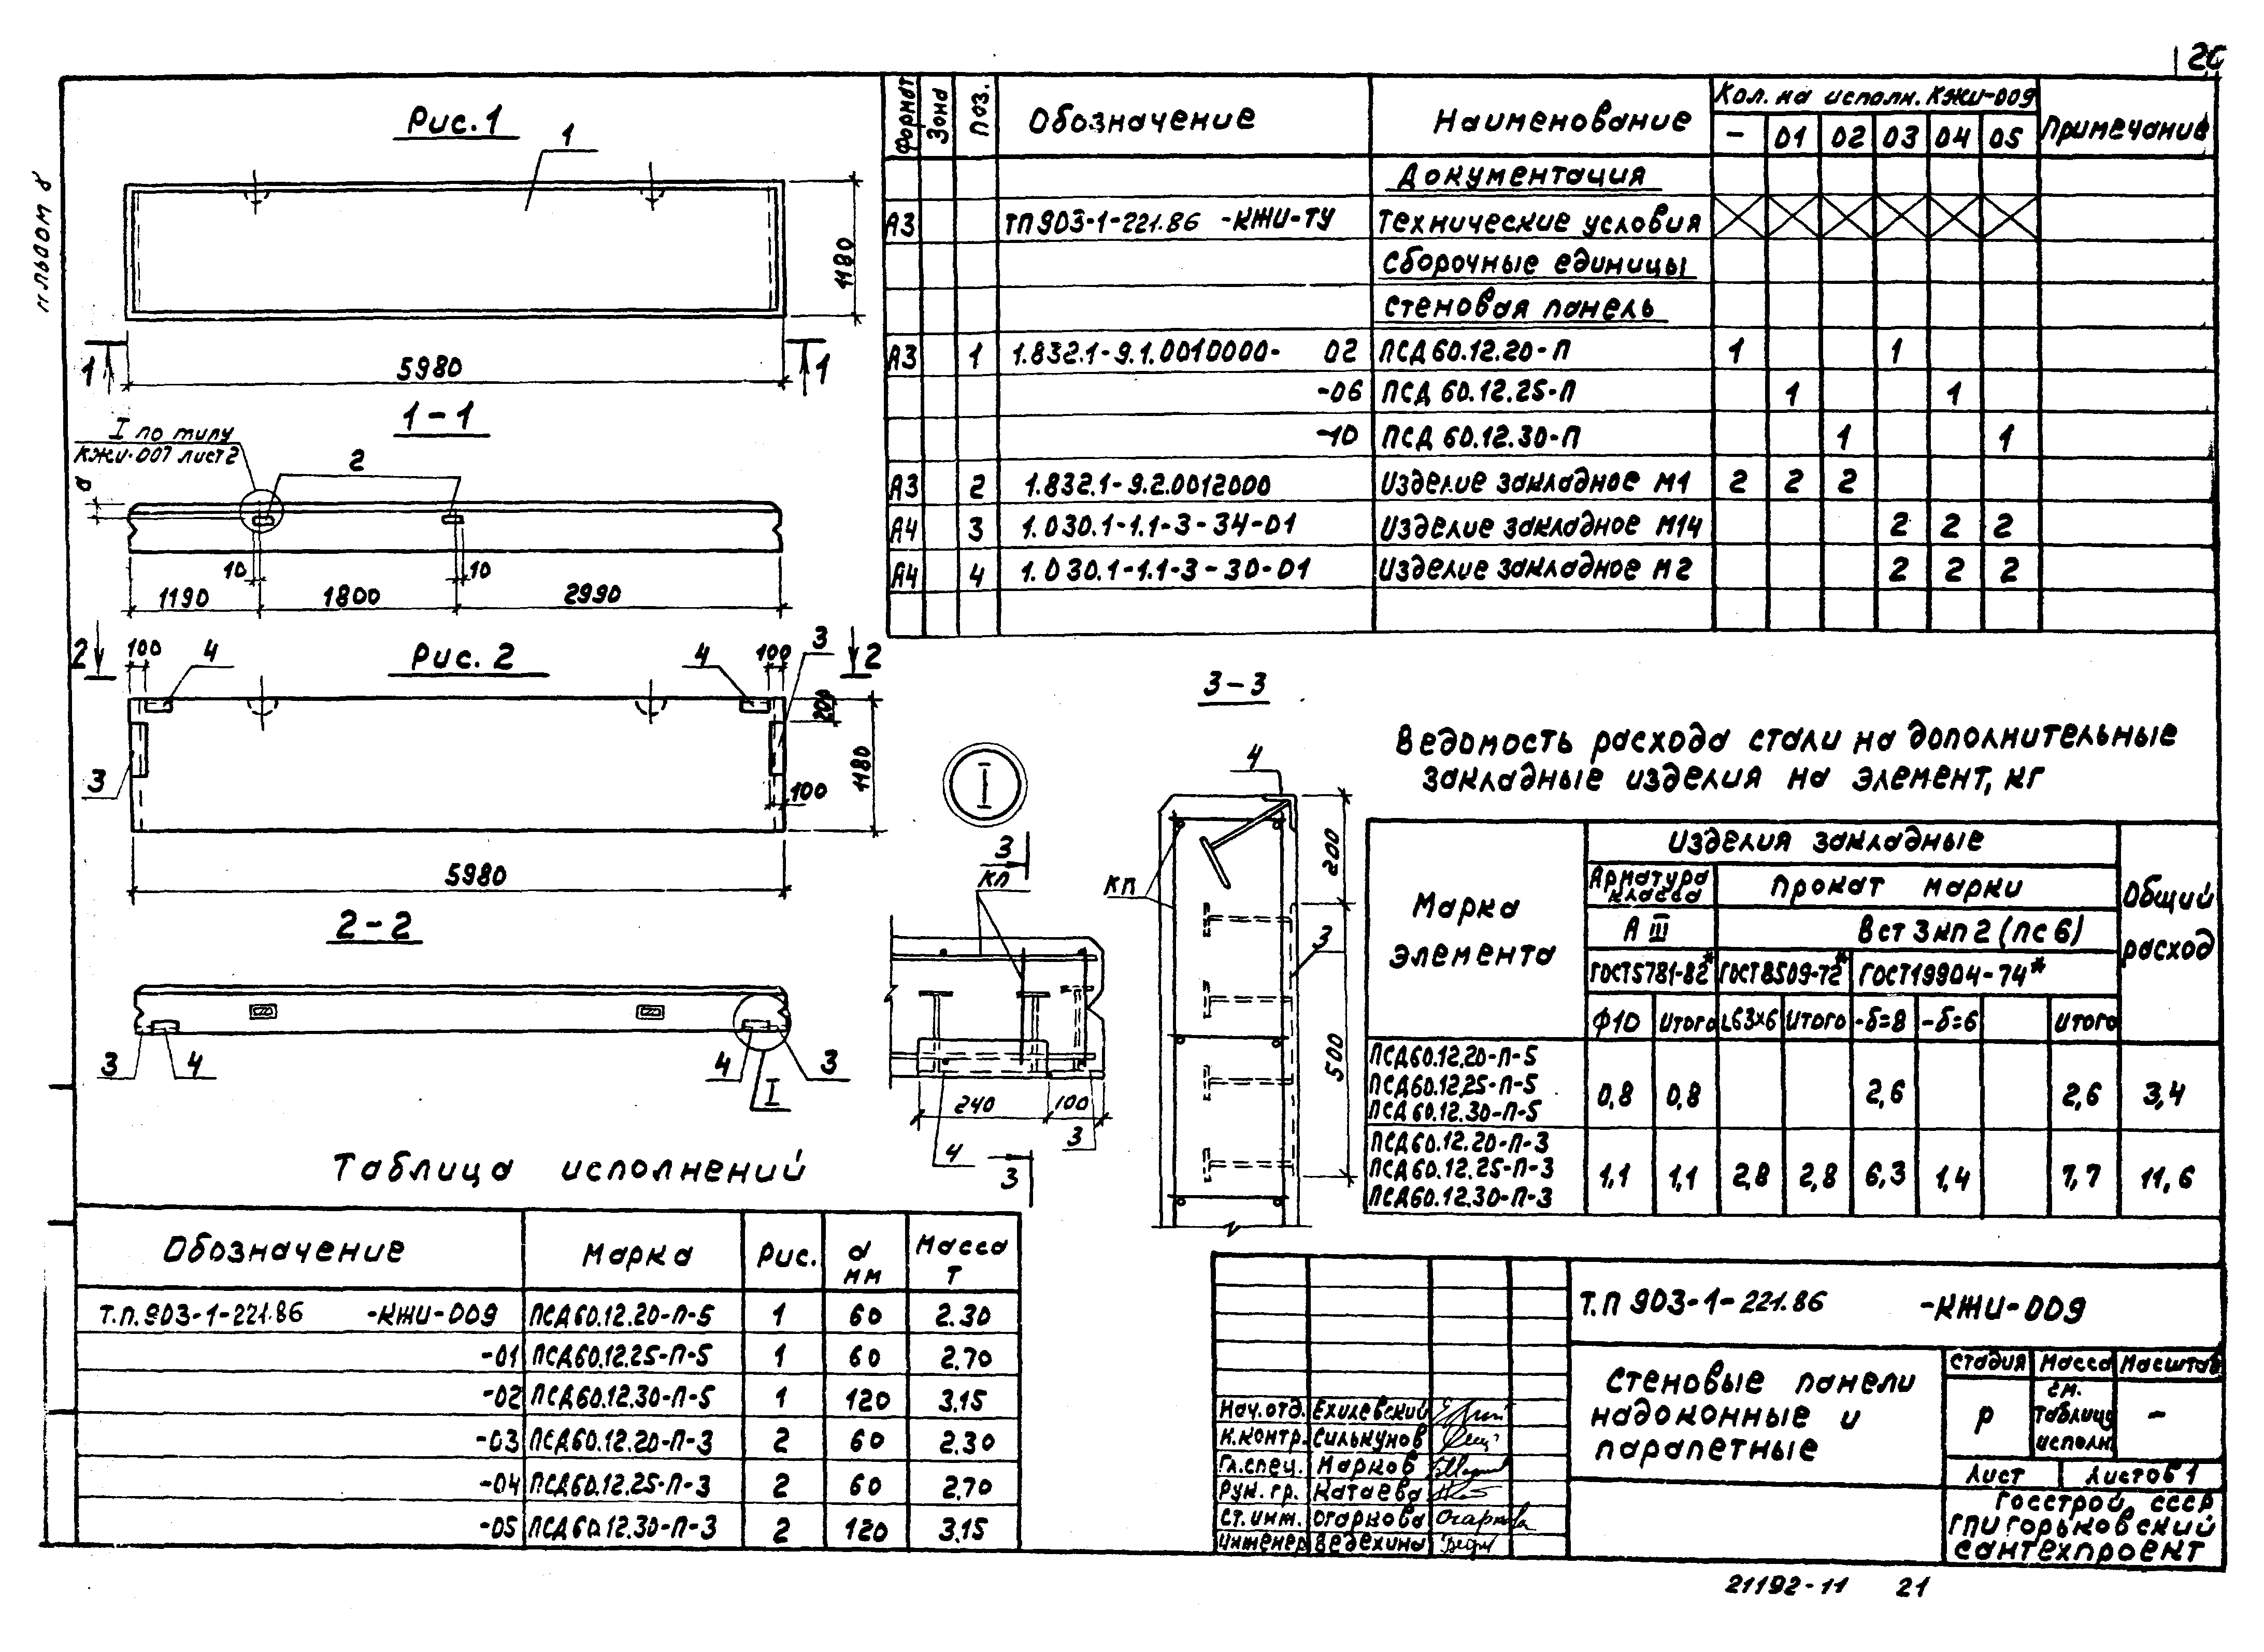 Альбом 8
Рис.1
1
1180
1 1
5980
1-1
I по типу
КЖИ-007 лист 2
2
а
10 10
1190 1800 2990
2 100 4 Рис. 2 4 100 3 2
200
3
1180
100
5980
2-2
3 4 4 3
I
I
3
КП
240 100
4 3
3
3-3
4
200
КП
3
500
Формат Зона Поз. Обозначение Наименование Кол. на исполн. КЖИ-009 Примечание
- 01 02 03 04 05
Документация
А3 ТП903-1-221.86 -КЖИ-ТУ Технические условия
Сборочные единицы
Стеновая панель
А3 1 1.832.1-9.1.0010000- 02 ПСД60.12.20-П 1 1
-06 ПСД 60.12.25-П 1 1
-10 ПСД 60.12.30-П 1 1
А3 2 1.832.1-9.2.0012000 Изделие закладное М1 2 2 2
А4 3 1.030.1-1.1-3-34-01 Изделие закладное М14 2 2 2
А4 4 1.030.1-1.1-3-30-01 Изделие закладное М2 2 2 2
Ведомость расхода стали на дополнительные
закладные изделия на элемент, кг
Марка элемента Изделия закладные Общий расход
Арматура класса Прокат марки
А III Вст 3кп2 (пс6)
ГОСТ5781-82* ГОСТ8509-72* ГОСТ19904-74*
Ф10 Итого L63×6 Итого -δ=8 -δ=6 Итого
ПСД60.12.20-П-5
ПСД60.12.25-П-5 0,8 0,8 2,6 2,6 3,4
ПСД60.12.30-П-5
ПСД60.12.20-П-3
ПСД60.12.25-П-3 1,1 1,1 2,8 2,8 6,3 1,4 7,7 11,6
ПСД60.12.30-П-3
Таблица исполнений
Обозначение Марка Рис. а мм Масса Т
Т.П.903-1-221.86 -КЖИ-009 ПСД60.12.20-П-5 1 60 2.30
-01 ПСД60.12.25-П-5 1 60 2.70
-02 ПСД60.12.30-П-5 1 120 3.15
-03 ПСД60.12.20-П-3 2 60 2.30
-04 ПСД60.12.25-П-3 2 60 2.70
-05 ПСД60.12.30-П-3 2 120 3.15
Т.П 903-1-221.86 -КЖИ-009
Стеновые панели
надоконные и
парапетные
Стадия Масса Масштаб
Р см. таблицу исполн. -
Лист Листов 1
Госстрой СССР
ГПИ Горьковский
Сантехпроект
Нач.отд. Ехилевский
Н.контр. Силькунов
Гл.спец. Марков
Рук. гр. Катаева
Ст.инж. Огаркова Огаркова
Инженер Ведехина
21192-11 21